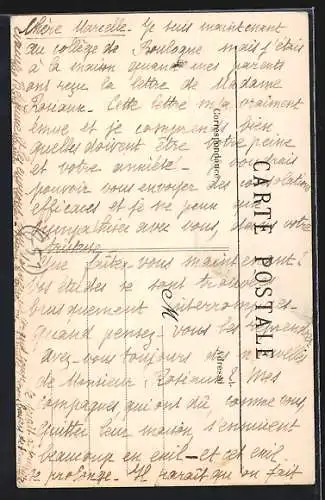 Chère Marcelle. Je suis maintenant
au collège de Boulogne mais j'étais
à la maison quand mes parents
ont reçu la lettre de Madame
Rosiaux. Cette lettre m'a vraiment
émue et je comprends bien
quelles doivent être votre peine
et votre anxiété. Je voudrais
pouvoir vous envoyer des consolations
efficaces et je ne peux que
sympathiser avec vous, dans votre
tristesse
Que faites vous maintenant?
Vos études se sont trouvées
brusquement interrompues.
Quand pensez vous les reprendre
avez-vous toujours des nouvelles
de Monsieur Rosiaux? Mes
compagnes qui ont dû comme vous
quitter leur maison s'ennuient
beaucoup en exil et cet exil
se prolonge. Il paraît qu'on fait
CARTE POSTALE
Correspondance
Adresse
M